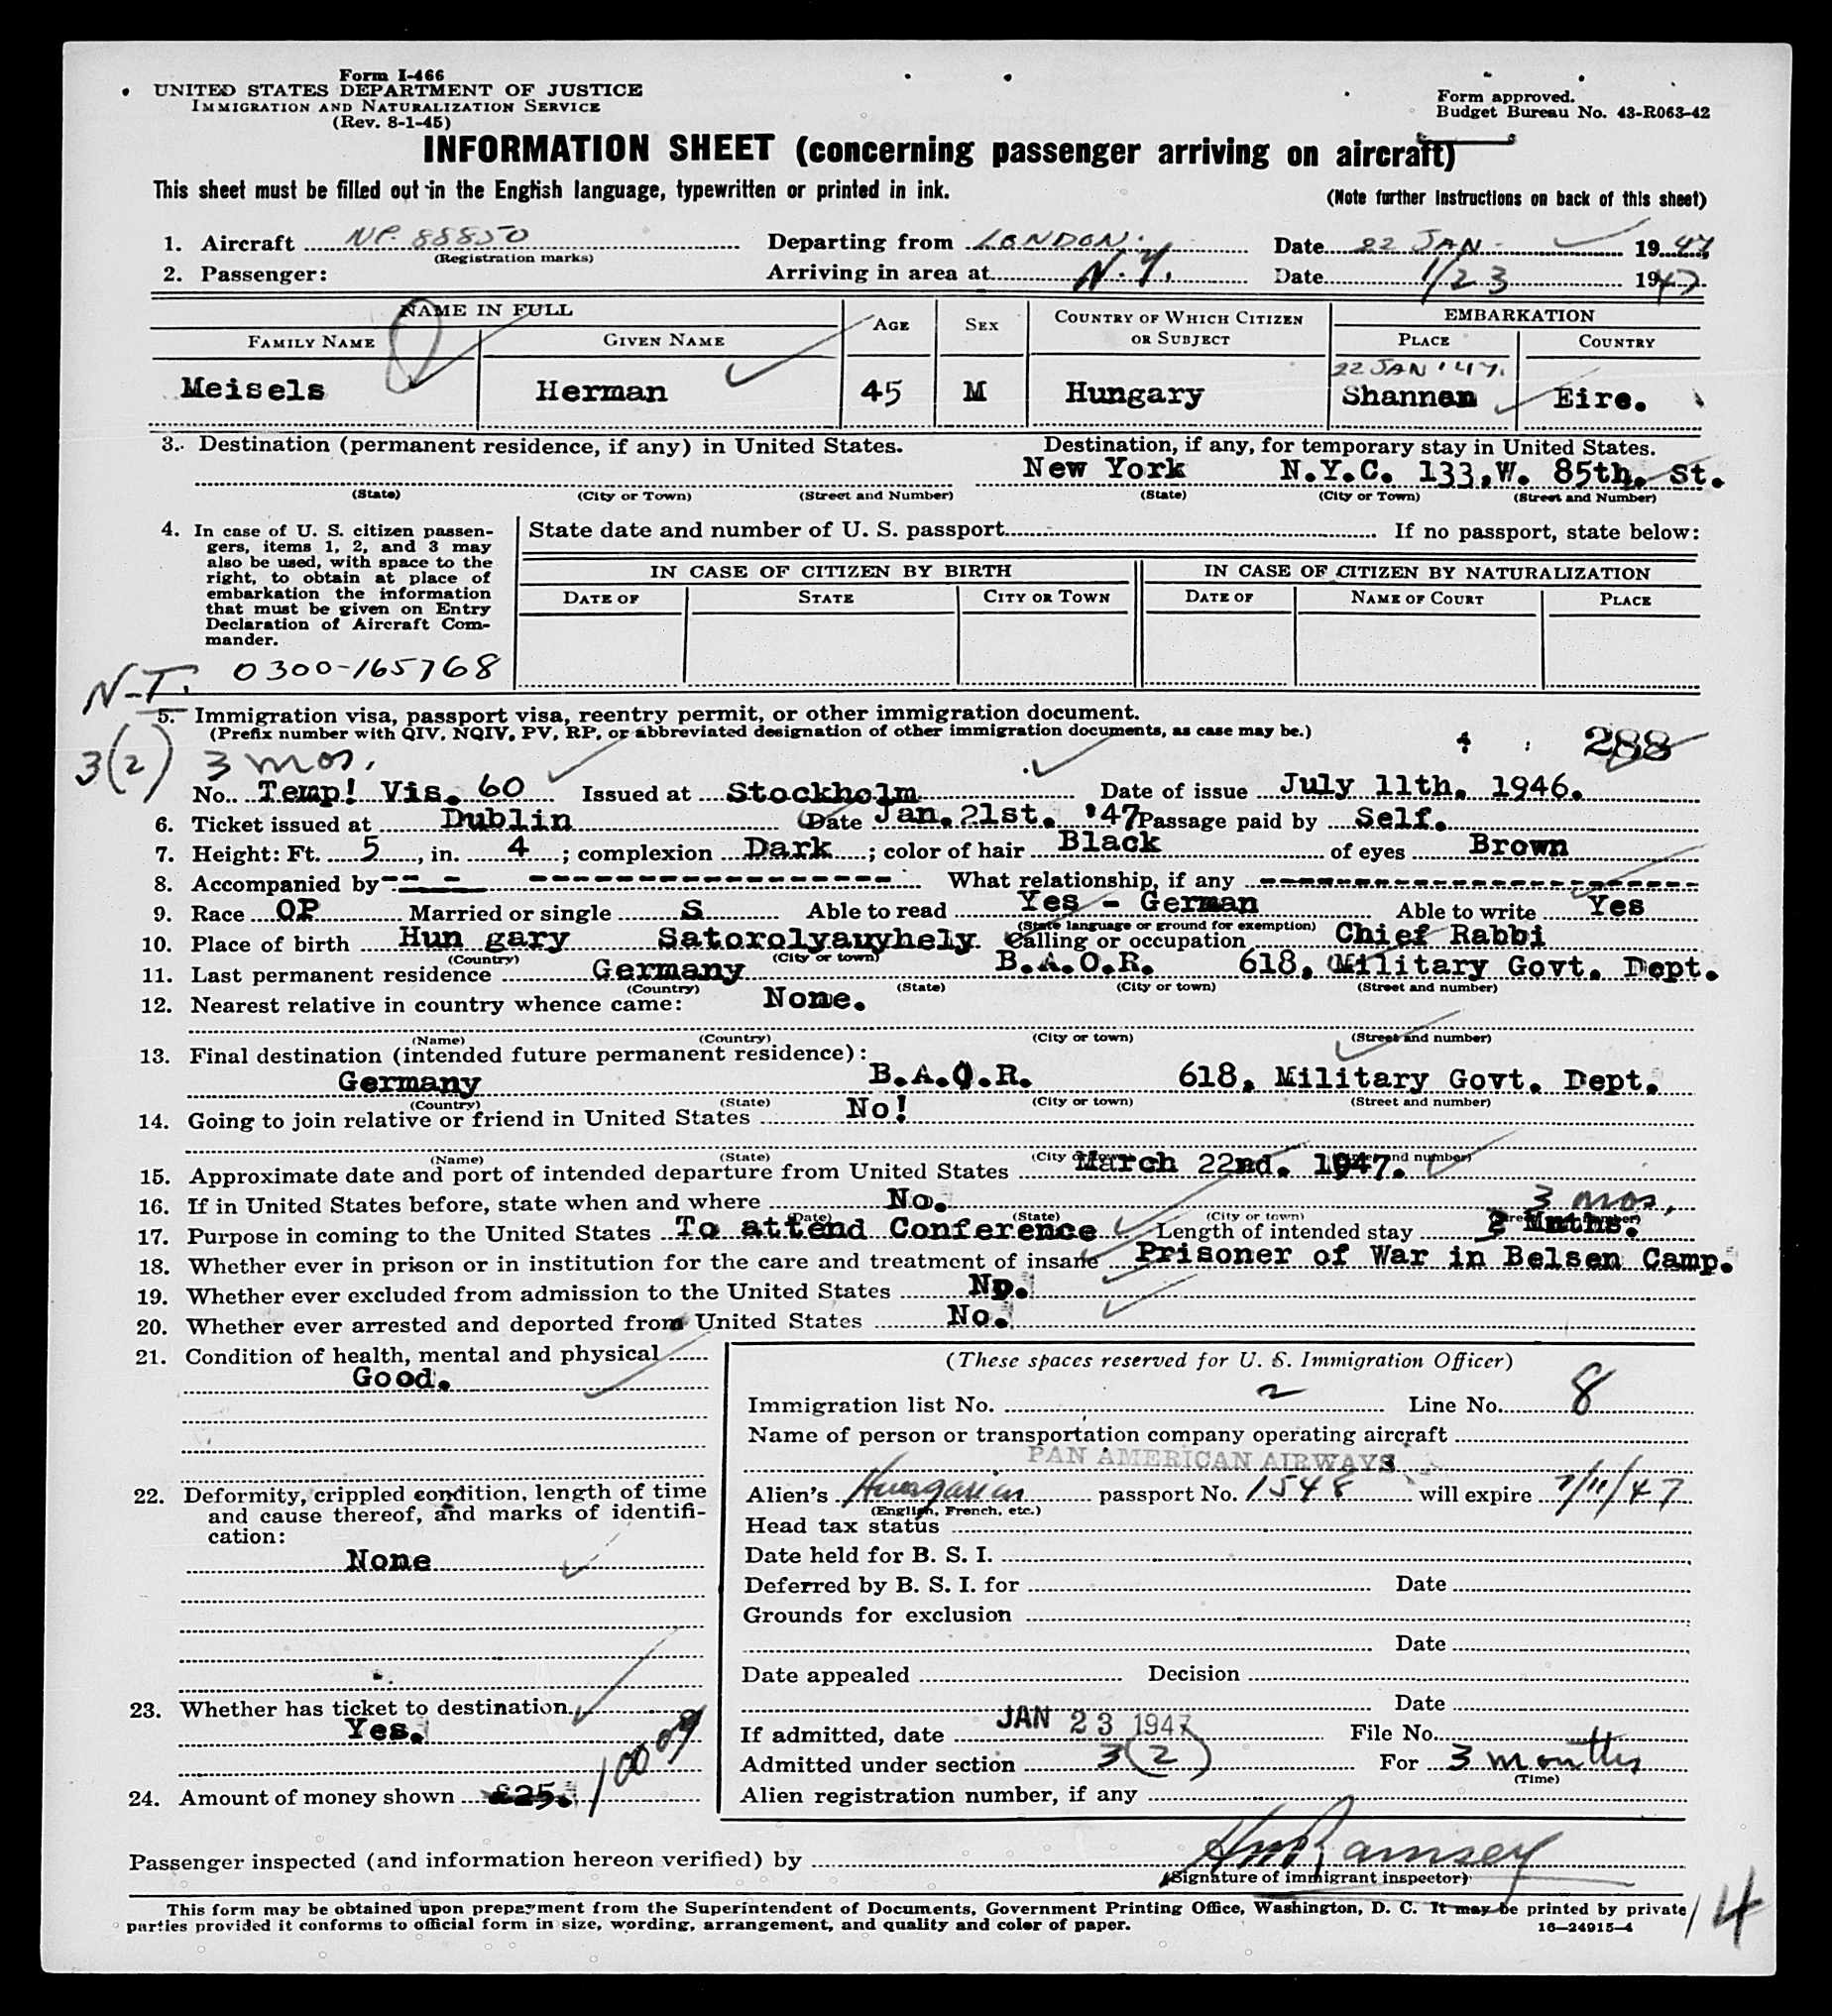 Form I-466
UNITED STATES DEPARTMENT OF JUSTICE
IMMIGRATION AND NATURALIZATION SERVICE
(Rev. 8-1-45)
Form approved.
Budget Bureau No. 43-R063-42
INFORMATION SHEET (concerning passenger arriving on aircraft)
This sheet must be filled out in the English language, typewritten or printed in ink.
(Note further instructions on back of this sheet)
1. Aircraft NP. 88850 Departing from LONDON. Date 22 JAN 1947
(Registration marks)
2. Passenger: Arriving in area at N.Y. Date 1/23 1947
NAME IN FULL AGE SEX COUNTRY OF WHICH CITIZEN OR SUBJECT EMBARKATION
FAMILY NAME GIVEN NAME PLACE COUNTRY
22 JAN '47.
Meisels Herman 45 M Hungary Shannon Eire.
3. Destination (permanent residence, if any) in United States. Destination, if any, for temporary stay in United States.
New York N.Y.C. 133,W. 85th. St.
(State) (City or Town) (Street and Number) (State) (City or Town) (Street and Number)
4. In case of U. S. citizen passen-
gers, items 1, 2, and 3 may
also be used, with space to the
right, to obtain at place of
embarkation the information
that must be given on Entry
Declaration of Aircraft Com-
mander.
State date and number of U. S. passport If no passport, state below:
IN CASE OF CITIZEN BY BIRTH IN CASE OF CITIZEN BY NATURALIZATION
DATE OF STATE CITY OR TOWN DATE OF NAME OF COURT PLACE
0300-165768
N-T.
5. Immigration visa, passport visa, reentry permit, or other immigration document.
(Prefix number with QIV, NQIV, PV, RP, or abbreviated designation of other immigration documents, as case may be.)
288
3(2) 3 mos.
No. Temp! Vis. 60 Issued at Stockholm Date of issue July 11th. 1946.
6. Ticket issued at Dublin Date Jan. 21st. '47 Passage paid by Self.
7. Height: Ft. 5, in. 4; complexion Dark; color of hair Black of eyes Brown
8. Accompanied by What relationship, if any
9. Race OP Married or single S Able to read Yes - German Able to write Yes
(State language or ground for exemption)
10. Place of birth Hun gary Satorolyauyhely Calling or occupation Chief Rabbi
(Country) (City or town)
11. Last permanent residence Germany B.A.O.R. 618, Military Govt. Dept.
(Country) (State) (City or town) (Street and number)
12. Nearest relative in country whence came: None.
(Name) (Country) (City or town) (Street and number)
13. Final destination (intended future permanent residence):
Germany B.A.O.R. 618, Military Govt. Dept.
(Country) (State) (City or town) (Street and number)
14. Going to join relative or friend in United States No!
(Name) (State) (City or town) (Street and number)
15. Approximate date and port of intended departure from United States March 22nd. 1947.
16. If in United States before, state when and where No.
3 mos.
(Date) (State) (City or town) (Street and number)
17. Purpose in coming to the United States To attend Conference Length of intended stay 2 Mnths.
18. Whether ever in prison or in institution for the care and treatment of insane Prisoner of War in Belsen Camp.
19. Whether ever excluded from admission to the United States No.
20. Whether ever arrested and deported from United States No.
21. Condition of health, mental and physical
Good.
22. Deformity, crippled condition, length of time
and cause thereof, and marks of identifi-
cation:
None
23. Whether has ticket to destination
Yes.
24. Amount of money shown £25. 100 00
(These spaces reserved for U. S. Immigration Officer)
Immigration list No. 2 Line No. 8
Name of person or transportation company operating aircraft
PAN AMERICAN AIRWAYS
Alien's Hungarian passport No. 1548 will expire 7/11/47
(English, French, etc.)
Head tax status
Date held for B. S. I.
Deferred by B. S. I. for Date
Grounds for exclusion
Date
Date appealed Decision
Date
If admitted, date JAN 23 1947 File No.
Admitted under section 3(2) For 3 months
(Time)
Alien registration number, if any
Passenger inspected (and information hereon verified) by HM Ramsey
(Signature of immigrant inspector)
This form may be obtained upon prepayment from the Superintendent of Documents, Government Printing Office, Washington, D. C. It may be printed by private
parties provided it conforms to official form in size, wording, arrangement, and quality and color of paper.
16—24915-4
14